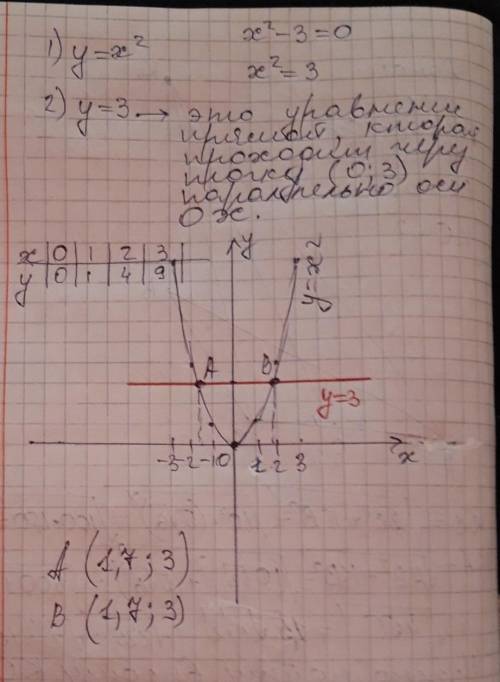 x² - 3 = 0
1) y = x²
x² = 3
2) y = 3 → это уравнение
прямой, кторая
проходит через
точку (0; 3)
параллельно оси
Ох.
y
x 0 1 2 3
y 0 1 4 9
y = x²
A
B
y=3
-3 -2 -1 0 1 2 3
x
A (1,7 ; 3)
B (1,7 ; 3)